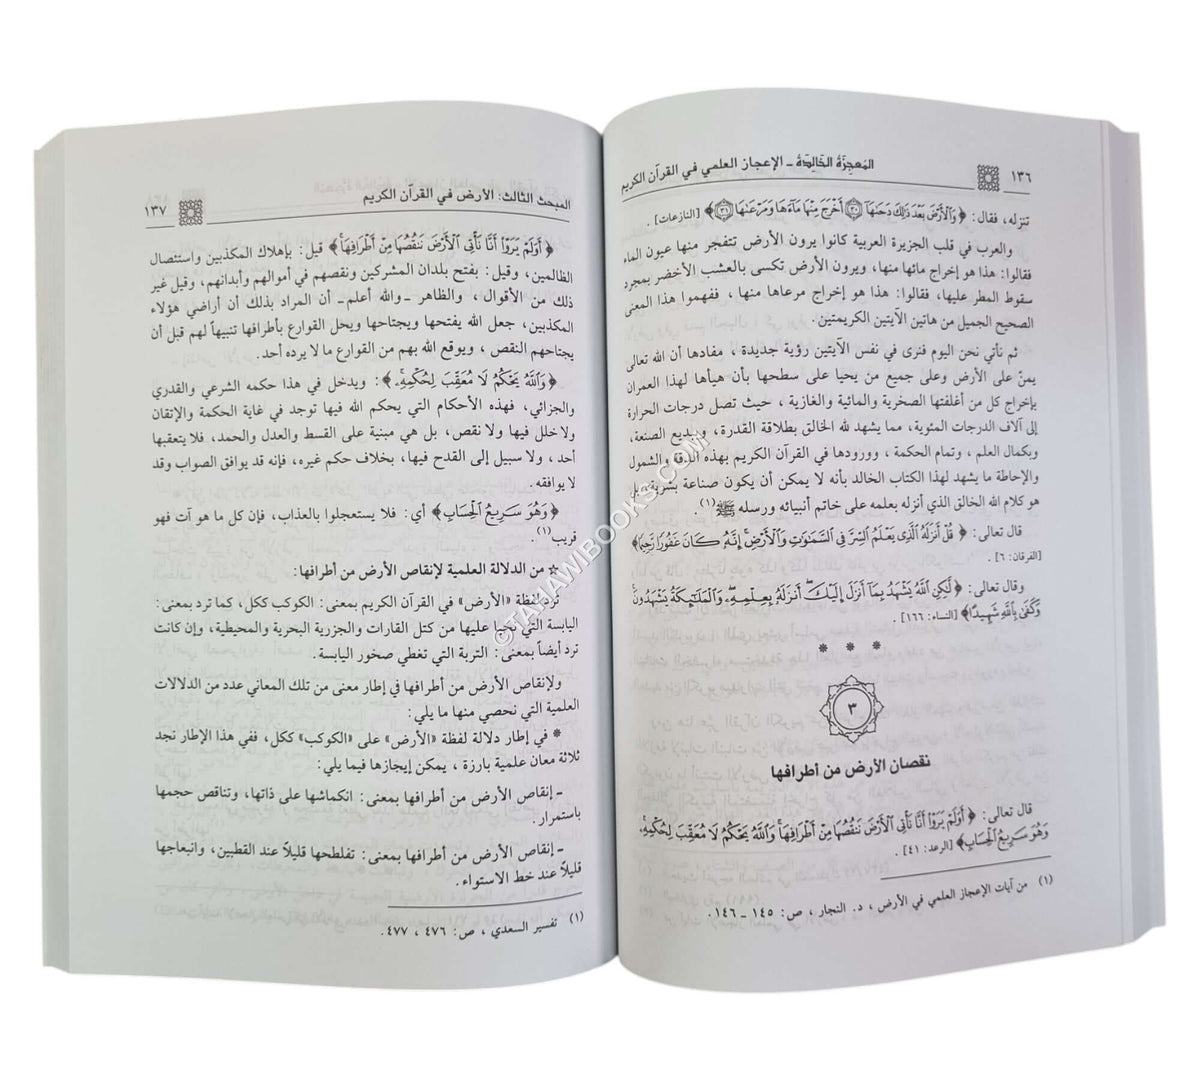 ١٣٦ المعجزة الخالدة ـ الإعجاز العلمي في القرآن الكريم
تنزله، فقال: ﴿وَٱلْأَرْضَ بَعْدَ ذَٰلِكَ دَحَىٰهَآ ﴿٣٠﴾ أَخْرَجَ مِنْهَا مَآءَهَا وَمَرْعَىٰهَا ﴿٣١﴾﴾ [النازعات].
والعرب في قلب الجزيرة العربية كانوا يرون الأرض تتفجر منها عيون الماء
فقالوا: هذا هو إخراج مائها منها، ويرون الأرض تكسى بالعشب الأخضر بمجرد
سقوط المطر عليها، فقالوا: هذا هو إخراج مرعاها منها ، ففهموا هذا المعنى
الصحيح الجميل من هاتين الآيتين الكريمتين.
ثم نأتي نحن اليوم فنرى في نفس الآيتين رؤية جديدة ، مفادها أن الله تعالى
يمنّ على الأرض وعلى جميع من يحيا على سطحها بأن هيأها لهذا العمران
بإخراج كل من أغلفتها الصخرية والمائية والغازية ، حيث تصل درجات الحرارة
إلى آلاف الدرجات المئوية، مما يشهد لله الخالق بطلاقة القدرة، وببديع الصنعة،
وبكمال العلم ، وتمام الحكمة ، وورودها في القرآن الكريم بهذه الدقة والشمول
والإحاطة ما يشهد لهذا الكتاب الخالد بأنه لا يمكن أن يكون صناعة بشرية، بل
هو كلام الله الخالق الذي أنزله بعلمه على خاتم أنبيائه ورسله ﷺ(١).
قال تعالى: ﴿قُلْ أَنزَلَهُ ٱلَّذِى يَعْلَمُ ٱلسِّرَّ فِى ٱلسَّمَٰوَٰتِ وَٱلْأَرْضِ إِنَّهُۥ كَانَ غَفُورًا رَّحِيمًا﴾
[الفرقان: ٦] .
وقال تعالى: ﴿لَّٰكِنِ ٱللَّهُ يَشْهَدُ بِمَآ أَنزَلَ إِلَيْكَ أَنزَلَهُۥ بِعِلْمِهِۦ وَٱلْمَلَٰٓئِكَةُ يَشْهَدُونَ
وَكَفَىٰ بِٱللَّهِ شَهِيدًا﴾ [النساء: ١٦٦] .
* * *
٣
نقصان الأرض من أطرافها
قال تعالى: ﴿أَوَلَمْ يَرَوْا۟ أَنَّا نَأْتِى ٱلْأَرْضَ نَنقُصُهَا مِنْ أَطْرَافِهَا وَٱللَّهُ يَحْكُمُ لَا مُعَقِّبَ لِحُكْمِهِۦ
وَهُوَ سَرِيعُ ٱلْحِسَابِ﴾ [الرعد: ٤١] .
(١) من آيات الإعجاز العلمي في الأرض ، د. النجار ، ص: ١٤٥ ـ ١٤٦.
المبحث الثالث: الأرض في القرآن الكريم ١٣٧
﴿أَوَلَمْ يَرَوْا۟ أَنَّا نَأْتِى ٱلْأَرْضَ نَنقُصُهَا مِنْ أَطْرَافِهَا﴾ قيل: بإهلاك المكذبين واستئصال
الظالمين، وقيل: بفتح بلدان المشركين ونقصهم في أموالهم وأبدانهم، وقيل غير
ذلك من الأقوال ، والظاهر ـ والله أعلم ـ أن المراد بذلك أن أراضي هؤلاء
المكذبين، جعل الله يفتحها ويجتاحها ويحل القوارع بأطرافها تنبيهاً لهم قبل أن
يجتاحهم النقص ، ويوقع الله بهم من القوارع ما لا يرده أحد.
﴿وَٱللَّهُ يَحْكُمُ لَا مُعَقِّبَ لِحُكْمِهِۦ﴾: ويدخل في هذا حكمه الشرعي والقدري
والجزائي، فهذه الأحكام التي يحكم الله فيها توجد في غاية الحكمة والإتقان
ولا خلل فيها ولا نقص، بل هي مبنية على القسط والعدل والحمد، فلا يتعقبها
أحد ، ولا سبيل إلى القدح فيها، بخلاف حكم غيره، فإنه قد يوافق الصواب وقد
لا يوافقه.
﴿وَهُوَ سَرِيعُ ٱلْحِسَابِ﴾ أي: فلا يستعجلوا بالعذاب، فإن كل ما هو آت فهو
قريب(١).
☆ من الدلالة العلمية لإنقاص الأرض من أطرافها:
ترد لفظة «الأرض» في القرآن الكريم بمعنى: الكوكب ككل، كما ترد بمعنى:
اليابسة التي نحيا عليها من كتل القارات والجزرية البحرية والمحيطية، وإن كانت
ترد أيضاً بمعنى: التربة التي تغطي صخور اليابسة.
ولإنقاص الأرض من أطرافها في إطار معنى من تلك المعاني عدد من الدلالات
العلمية التي نحصي منها ما يلي:
* في إطار دلالة لفظة «الأرض» على «الكوكب» ككل، ففي هذا الإطار نجد
ثلاثة معان علمية بارزة ، يمكن إيجازها فيما يلي:
ـ إنقاص الأرض من أطرافها بمعنى: انكماشها على ذاتها، وتناقص حجمها
باستمرار.
ـ إنقاص الأرض من أطرافها بمعنى: تفلطحها قليلاً عند القطبين، وانبعاجها
قليلاً عند خط الاستواء.
(١) تفسير السعدي ، ص: ٤٧٦ ، ٤٧٧.
©TAHAWIBOOKS.COM